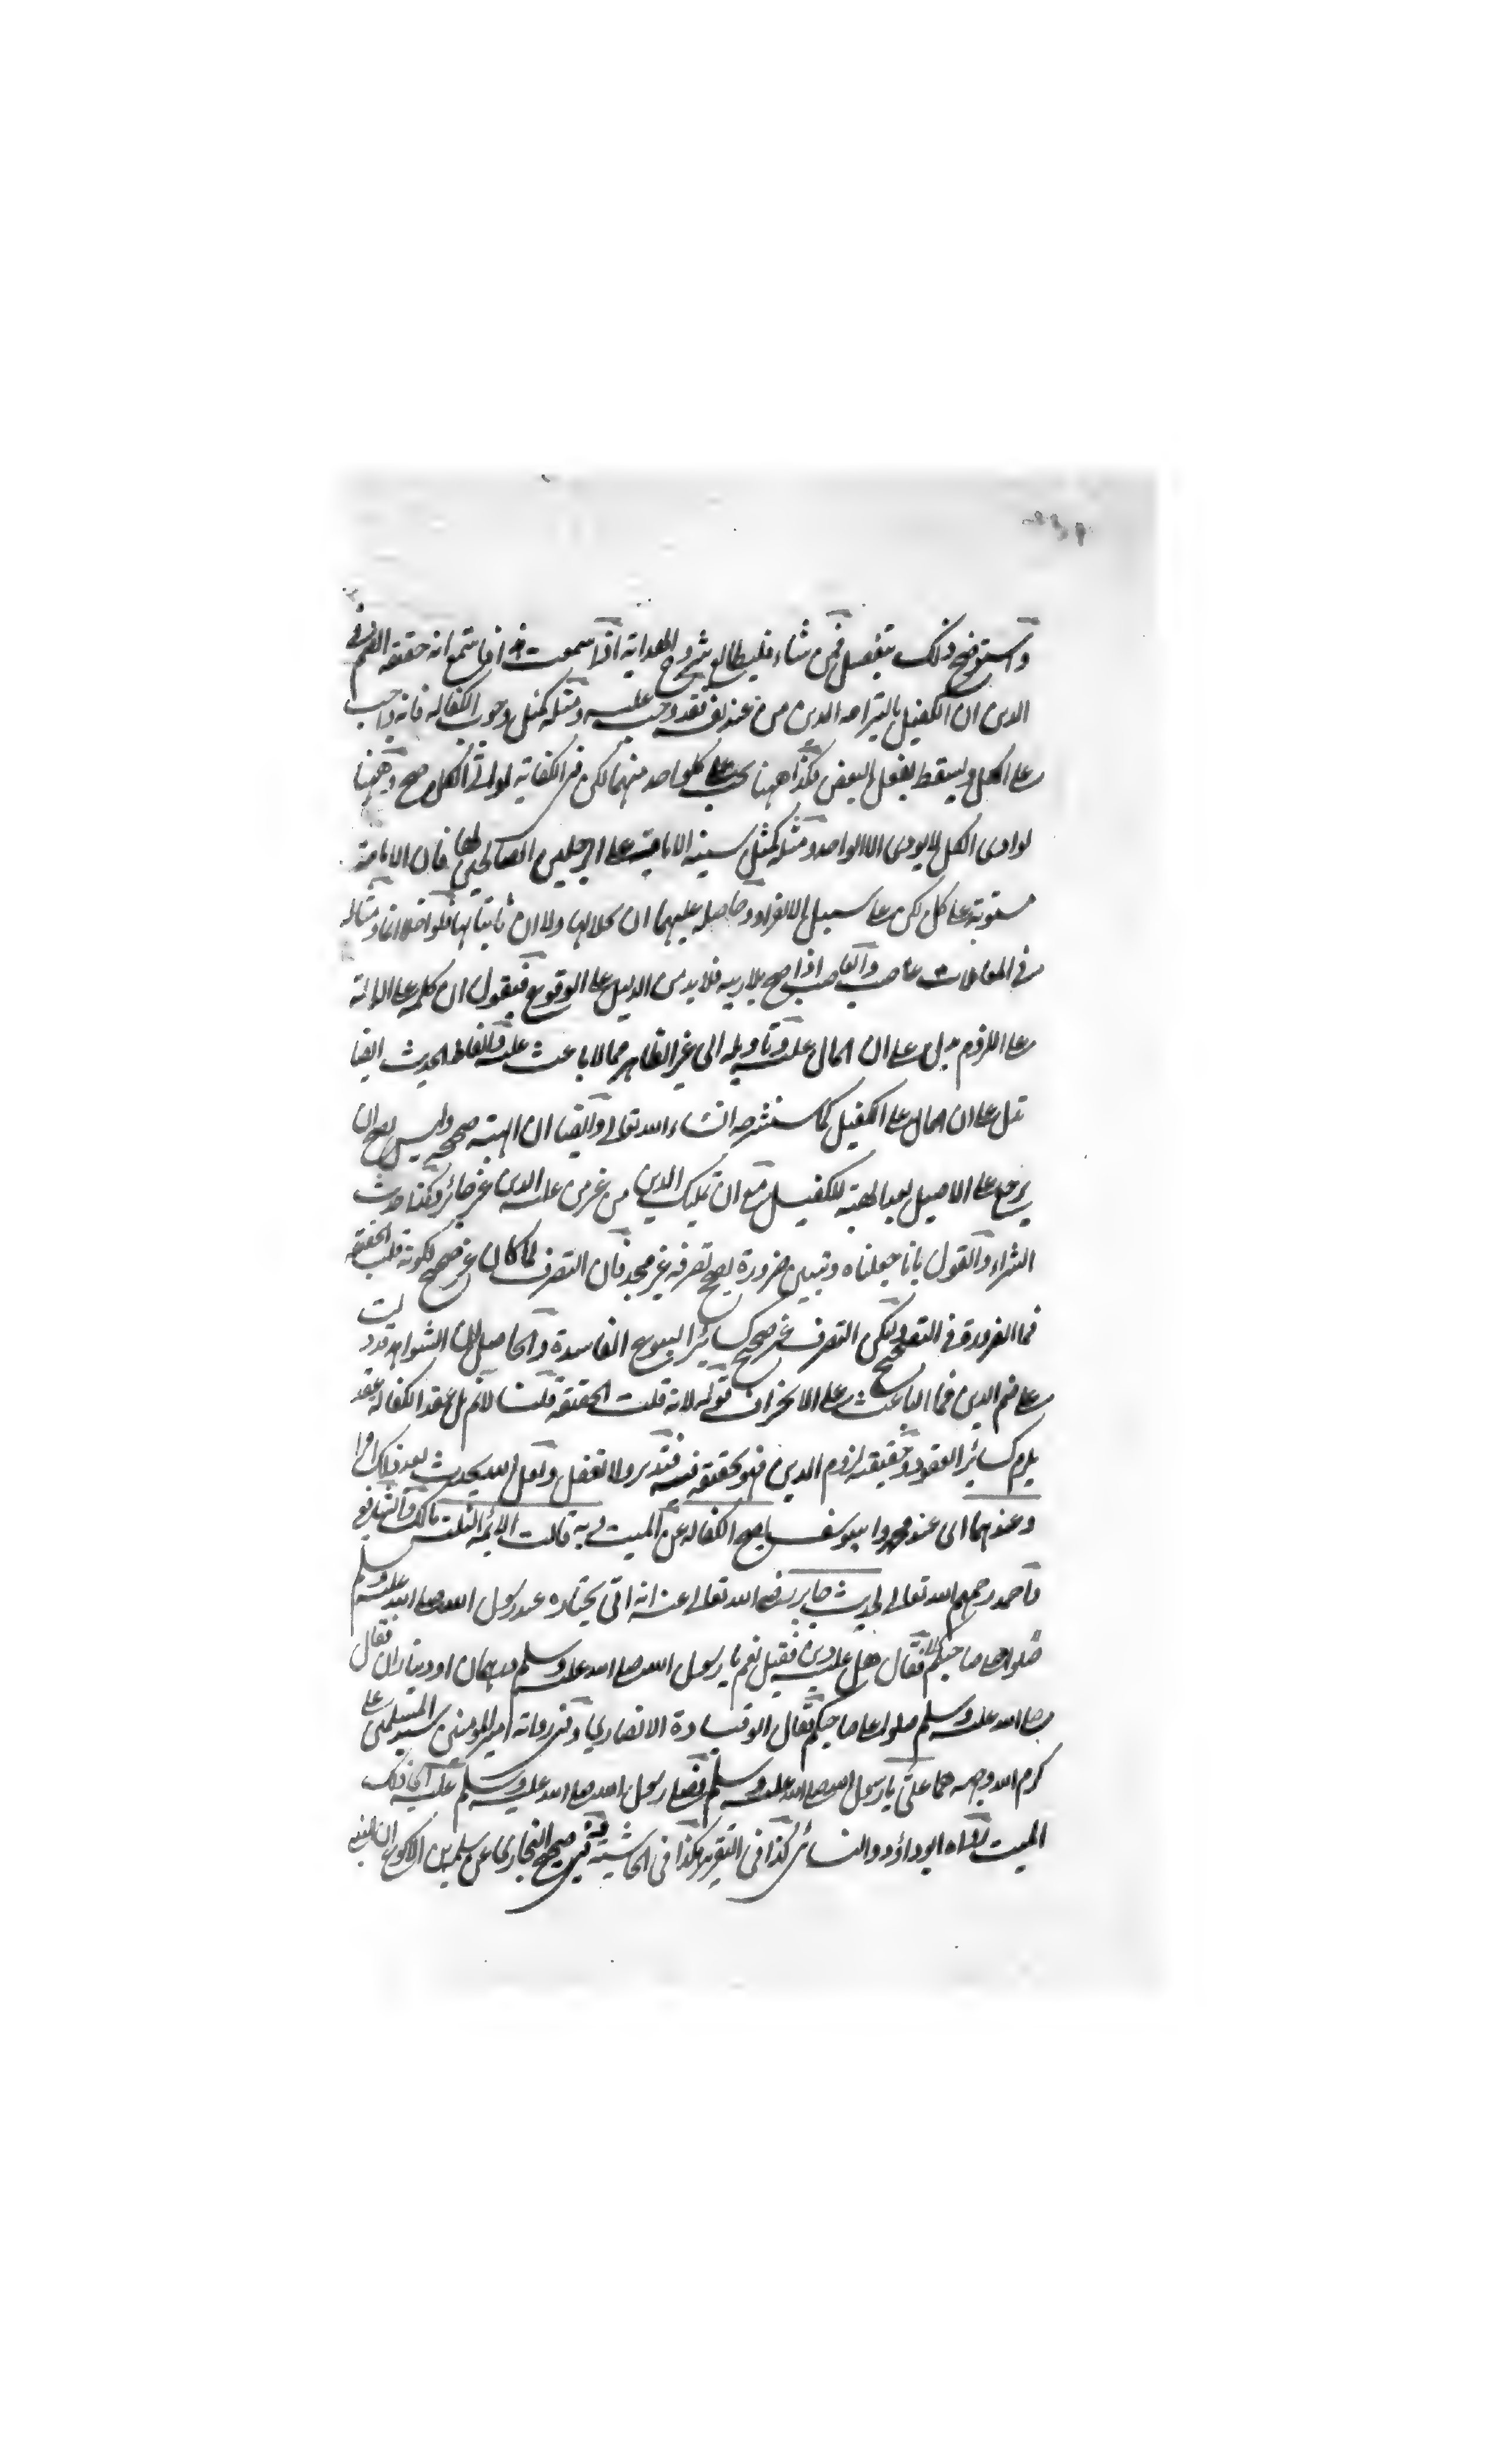 واستوضح ذلك بتفصيل فمن شاء فليطالع شروح الهداية اذا سمعت هذا فاستمع انه حقيقة الضم في
الدين ان الكفيل بالتزامه الدين من عند نفسه فقد وجب عليه ومثله كمثل وجوب الكفاية فانه واجب
على الكل ويسقط بفعل البعض فكذا ههنا يجب على كلواحد منهما لكن في الكفاية لو اتى الكل صح وههنا
لو ادى الكل لا يؤدى الا الواحد ومثله كمثل الامامة على الرجلين الصالحين لها فان الامامة
على كل لكن على سبيل الانفراد
في المعاملات غاصب الغاصب اذا صح بلا ريب فلابد من الدليل على الوقوع فنقول ان كلمة على الدالة
على اللزوم يدل على ان المال عليه وتاويله الى غير الظاهر مما لا باعث عليه والفاظ الحديث ايضا
تدل على ان المال على الكفيل كما سنشرحه انشاء الله تعالى وايضا ان الهبة صحيحة وليس يصح ان
يرجع على الاصيل بعد الهبة للكفيل مع ان تمليك الدين من غير من عليه الدين غير جائز وكذا حديث
الشراء والقول بانا جعلناه دينين ضرورة يصح تصرفه غير مجد فان التصرف لما كان غير صحيح لكونه قلب الحقيقة
فما الضرورة في التصحيح ليكن التصرف غير صحيح كسائر البيوع الفاسدة والحاصل ان الشواهد قد دلت
على ضم الدين فما الباعث على الانحراف قوله لانه قلب الحقيقة قلنا لا نم بل عقد الكفالة عقد
يلزم كسائر العقود وحقيقته لزوم الدين فهو حقيقة نفسه فتدبر ولا تغفل ولعل الله يحدث بعد ذلك امرا
وعندهما اى عند محمد وابيوسف يصح الكفالة عن الميت وبه قالت الائمة الثلث مالك والشافعي
واحمد رحمهم الله تعالى لحديث جابر رضي الله تعالى عنه انه اتى بجنازة عند رسول الله صلى الله عليه وسلم
فقال هل عليه دين فقيل نعم يا رسول الله صلى الله عليه وسلم درهمان او ديناران فقال
صلى الله عليه وسلم صلوا على صاحبكم فقال ابو قتادة الانصاري وفي رواية امير المؤمنين سيد المسلمين على
كرم الله وجهه هما علىّ يا رسول الله صلى الله عليه وسلم فصلى رسول الله صلى الله عليه وسلم على ذلك
الميت رواه ابو داؤد والنسائي كذا في التقرير وكذا في الحاشية وفي صحيح البخاري عن سلمة بن الاكوع ان النبي